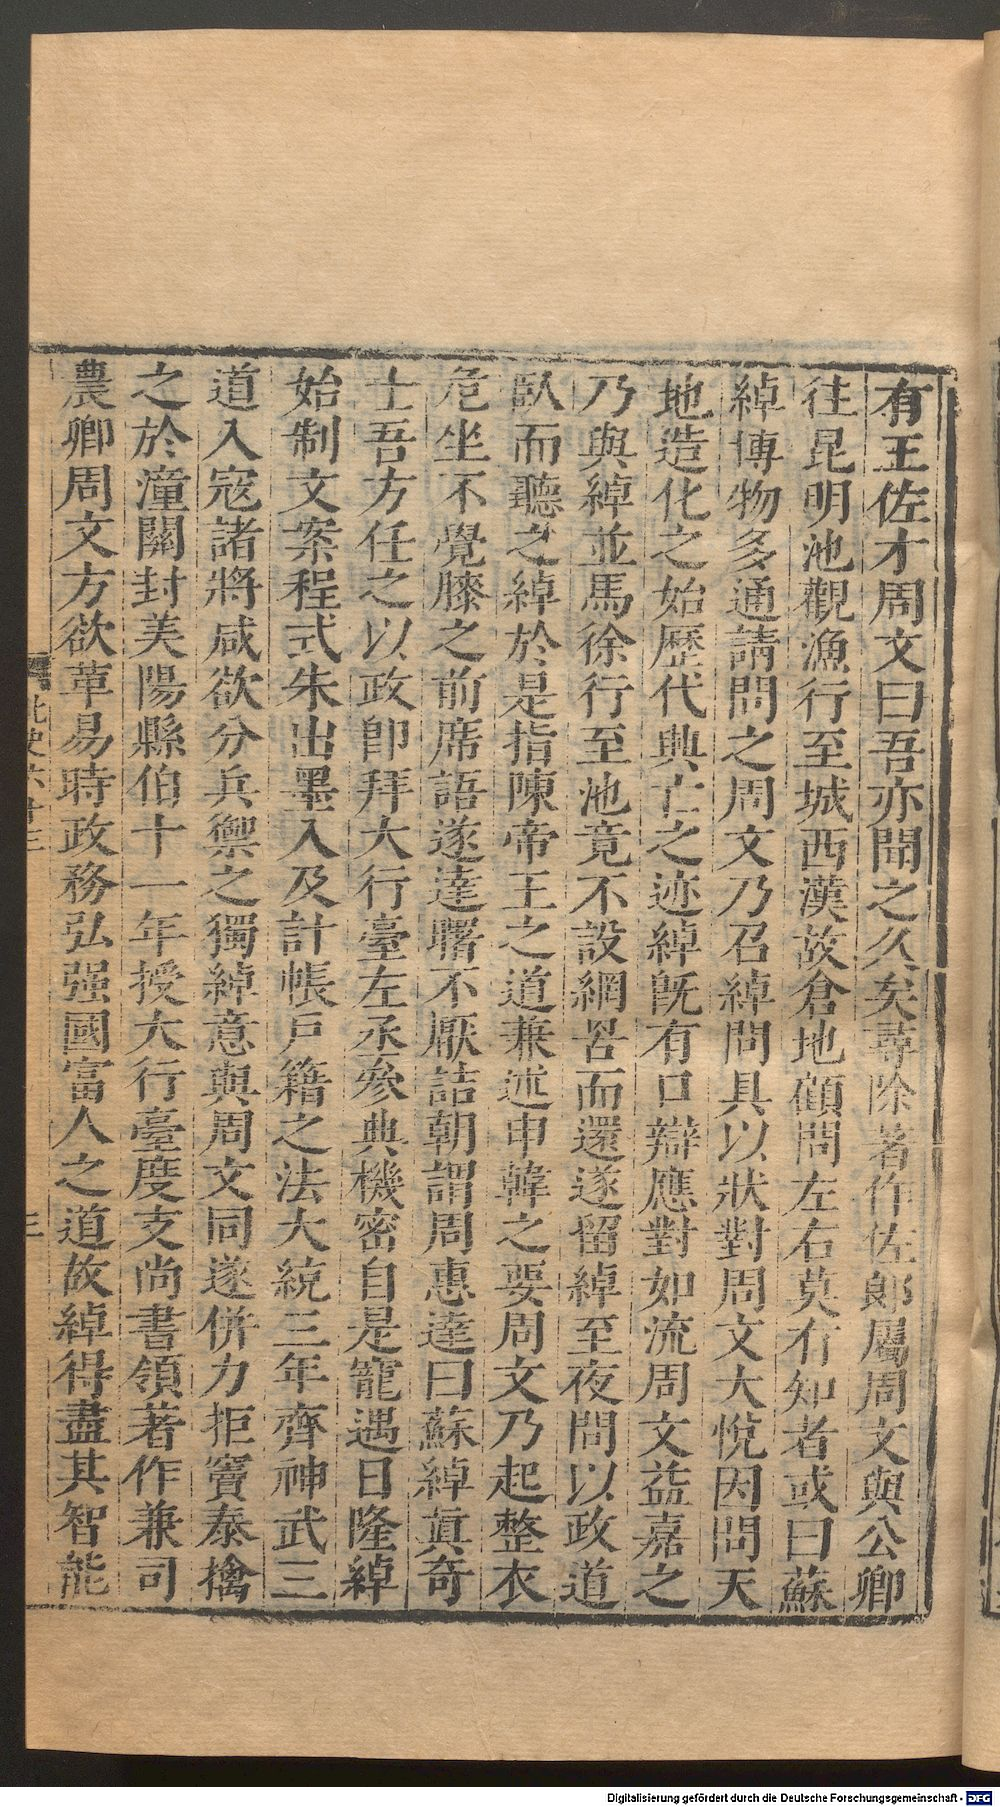 有王佐才周文曰吾亦聞之久矣尋除著作佐郎屬周文與公卿
往昆明池觀漁行至城西漢故倉地顧問左右莫有知者或曰蘇
綽博物多通請問之周文乃召綽問具以狀對周文大悅因問天
地造化之始歷代興亡之迹綽既有口辯應對如流周文益嘉之
乃與綽並馬徐行至池竟不設網罟而還遂留綽至夜問以政道
臥而聽之綽於是指陳帝王之道兼述申韓之要周文乃起整衣
危坐不覺膝之前席語遂達曙不厭詰朝謂周惠達曰蘇綽真奇
士吾方任之以政即拜大行臺左丞參典機密自是寵遇日隆綽
始制文案程式朱出墨入及計帳戶籍之法大統三年齊神武三
道入寇諸將咸欲分兵禦之獨綽意與周文同遂併力拒竇泰擒
之於潼關封美陽縣伯十一年授大行臺度支尚書領著作兼司
農卿周文方欲革易時政務弘强國富人之道故綽得盡其智能
北史六十三
三
Digitalisierung gefördert durch die Deutsche Forschungsgemeinschaft - DFG